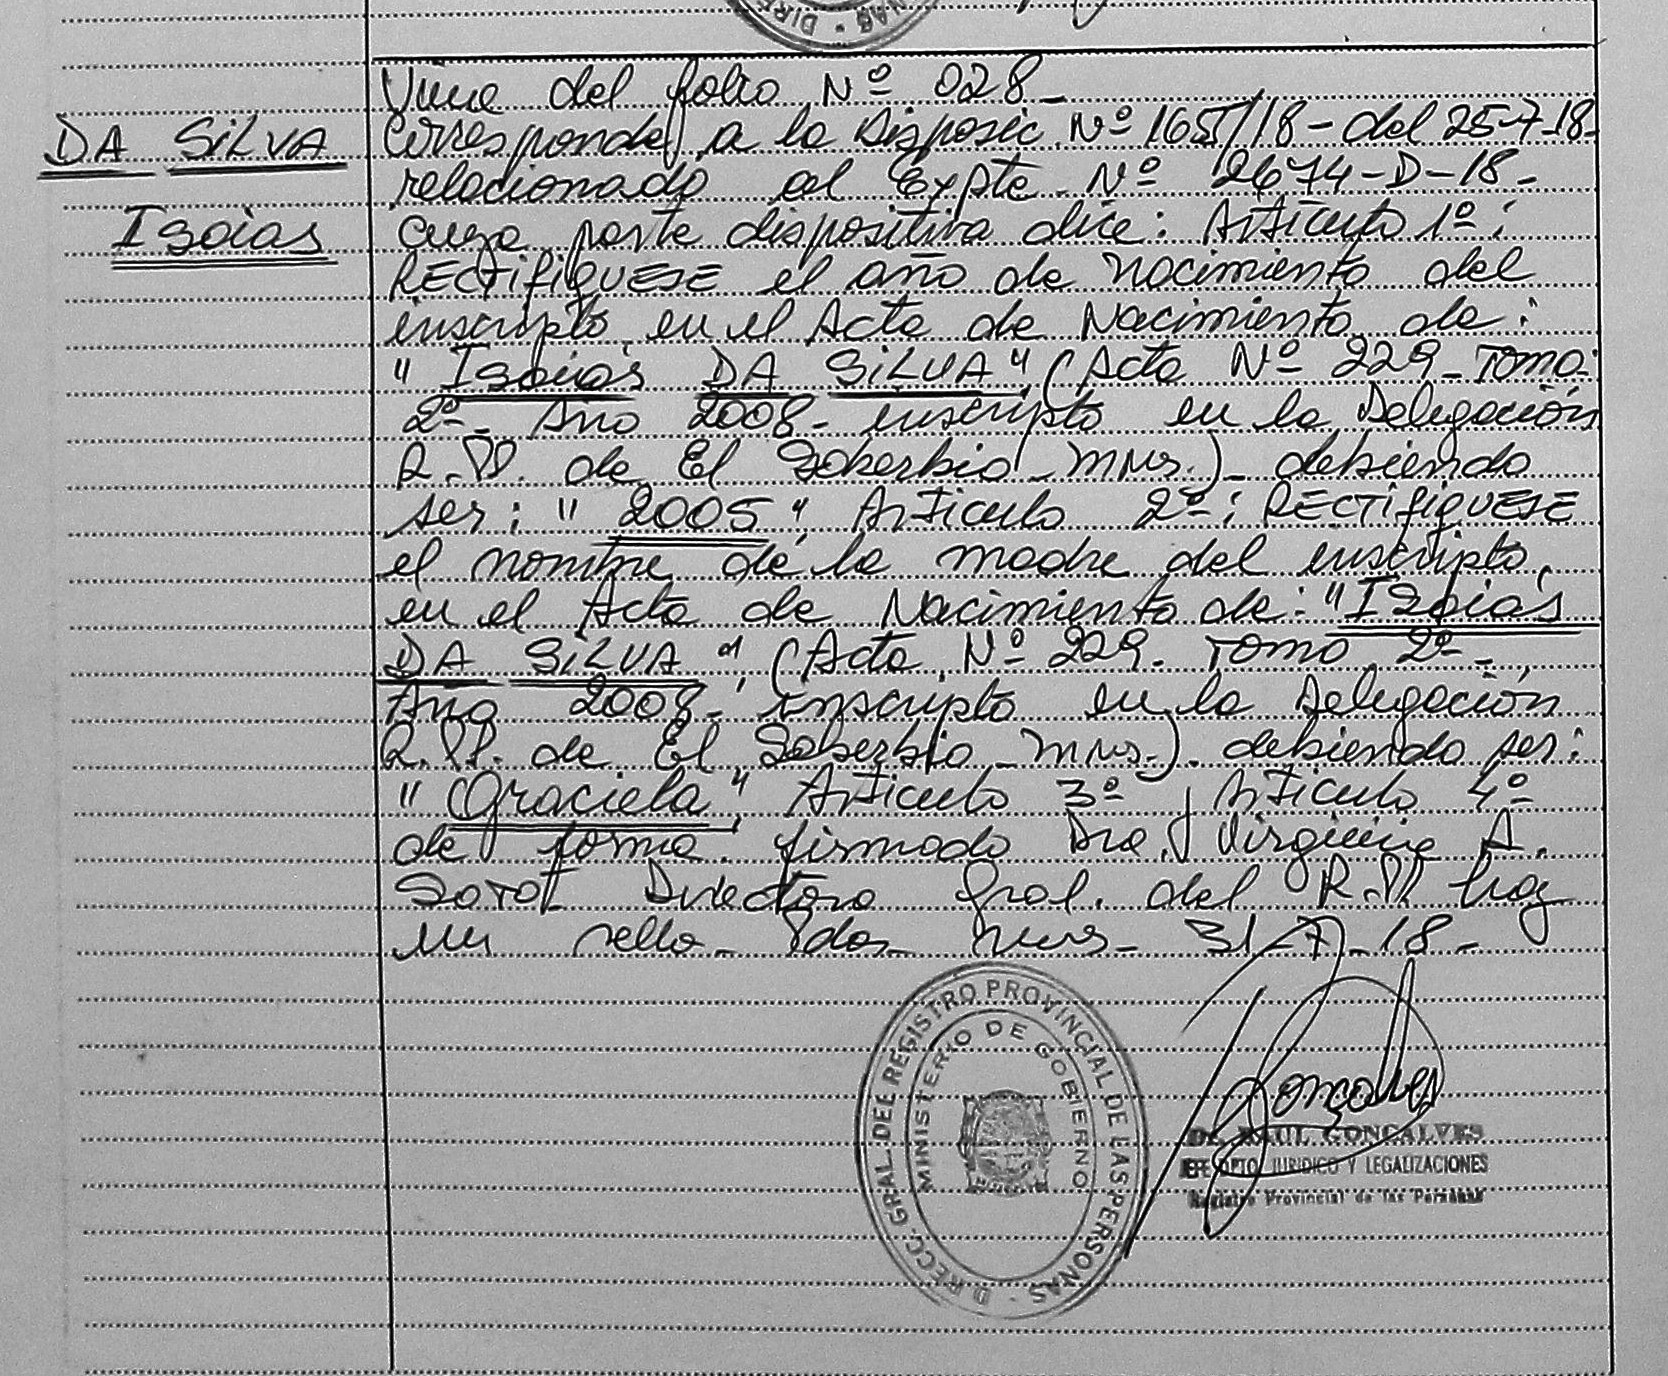 DIRE
NAS
Viene del folio Nº 028-
Corresponde a la Disposic. Nº 1655/18- del 25-7-18-
DA SiLVA
relacionado al Expte. Nº 2674-D-18-
Isaias
cuya parte dispositiva dice: Artículo 1º:
RECTifiQUESE el año de nacimiento del
inscripto en el Acta de Nacimiento de:
" Isaias DA SiLVA" (Acta Nº 229- Tomo
2º- Año 2008- inscripto en la Delegación
R.PP. de El Soberbio- Mnes.)- debiendo
ser: " 2005" Articulo 2º: RECTifiQUESE
el nombre de la madre del inscripto
en el Acta de Nacimiento de: "Isaias
DA SiLVA" (Acta Nº 229- Tomo 2º-
Año 2008- inscripto en la Delegación
R.PP. de El Soberbio- Mnes.). debiendo ser:
" Graciela" Articulo 3º y Articulo 4º
de forma. firmado Dra. Virginia A.
Directora Gral. del R.PP. hay
un sello- Pdas- Mnes- 31-7-18-
DIRECC. GRAL. DEL REGISTRO PROVINCIAL DE LAS PERSONAS
MINISTERIO DE GOBIERNO
Gonçalves
Dr. RAUL GONCALVES
JEFE DPTO. JURIDICO Y LEGALIZACIONES
Registro Provincial de las Personas